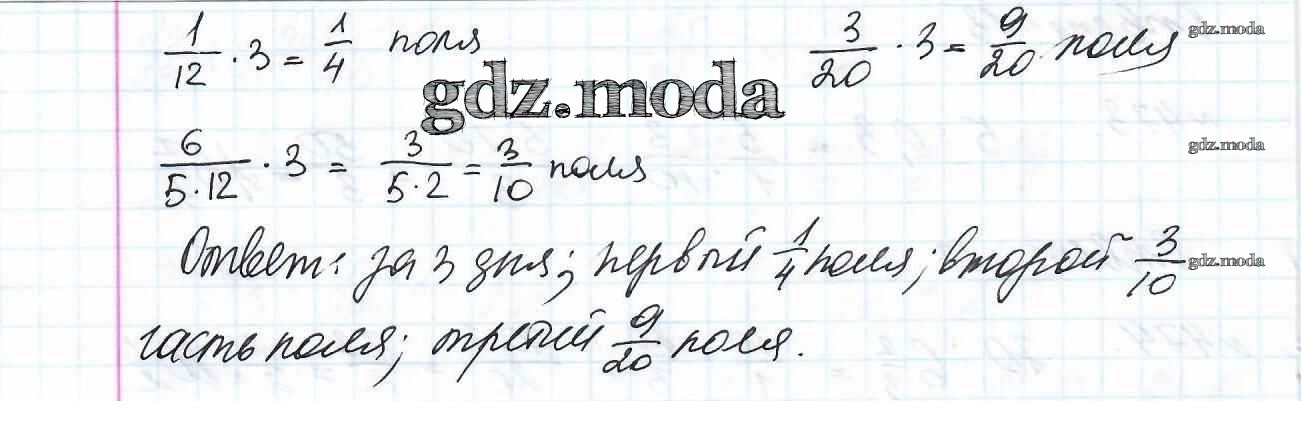 1/12 · 3 = 1/4 поля 3/20 · 3 = 9/20 поля gdz.moda
gdz.moda
6/(5·12) · 3 = 3/(5·2) = 3/10 поля gdz.moda
Ответ: за 3 дня; первый 1/4 поля; второй 3/10 gdz.moda
часть поля; третий 9/20 поля.